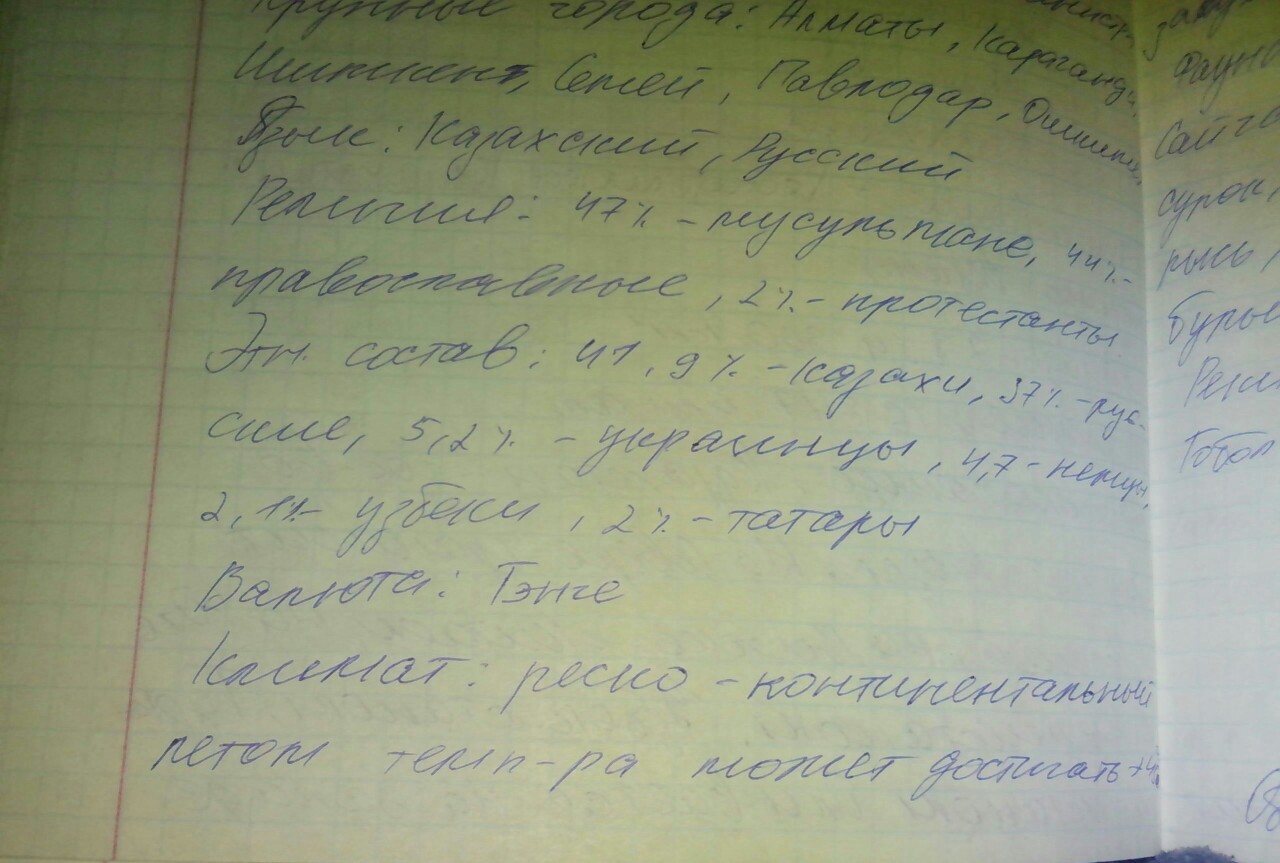 Крупные города: Алматы, Караганда,
Шимкент, Семей, Павлодар,
Язык: Казахский, Русский
Религия: 47% - мусульмане, 44% -
православные, 2% - протестанты
Этн. состав: 41,9% - казахи, 37% - рус-
ские, 5,2% - украинцы, 4,7 - немцы,
2,1% - узбеки, 2% - татары
Валюта: Тэнге
Климат: реско - континентальный
летом темп-ра может достигать
сурок,
рысь,